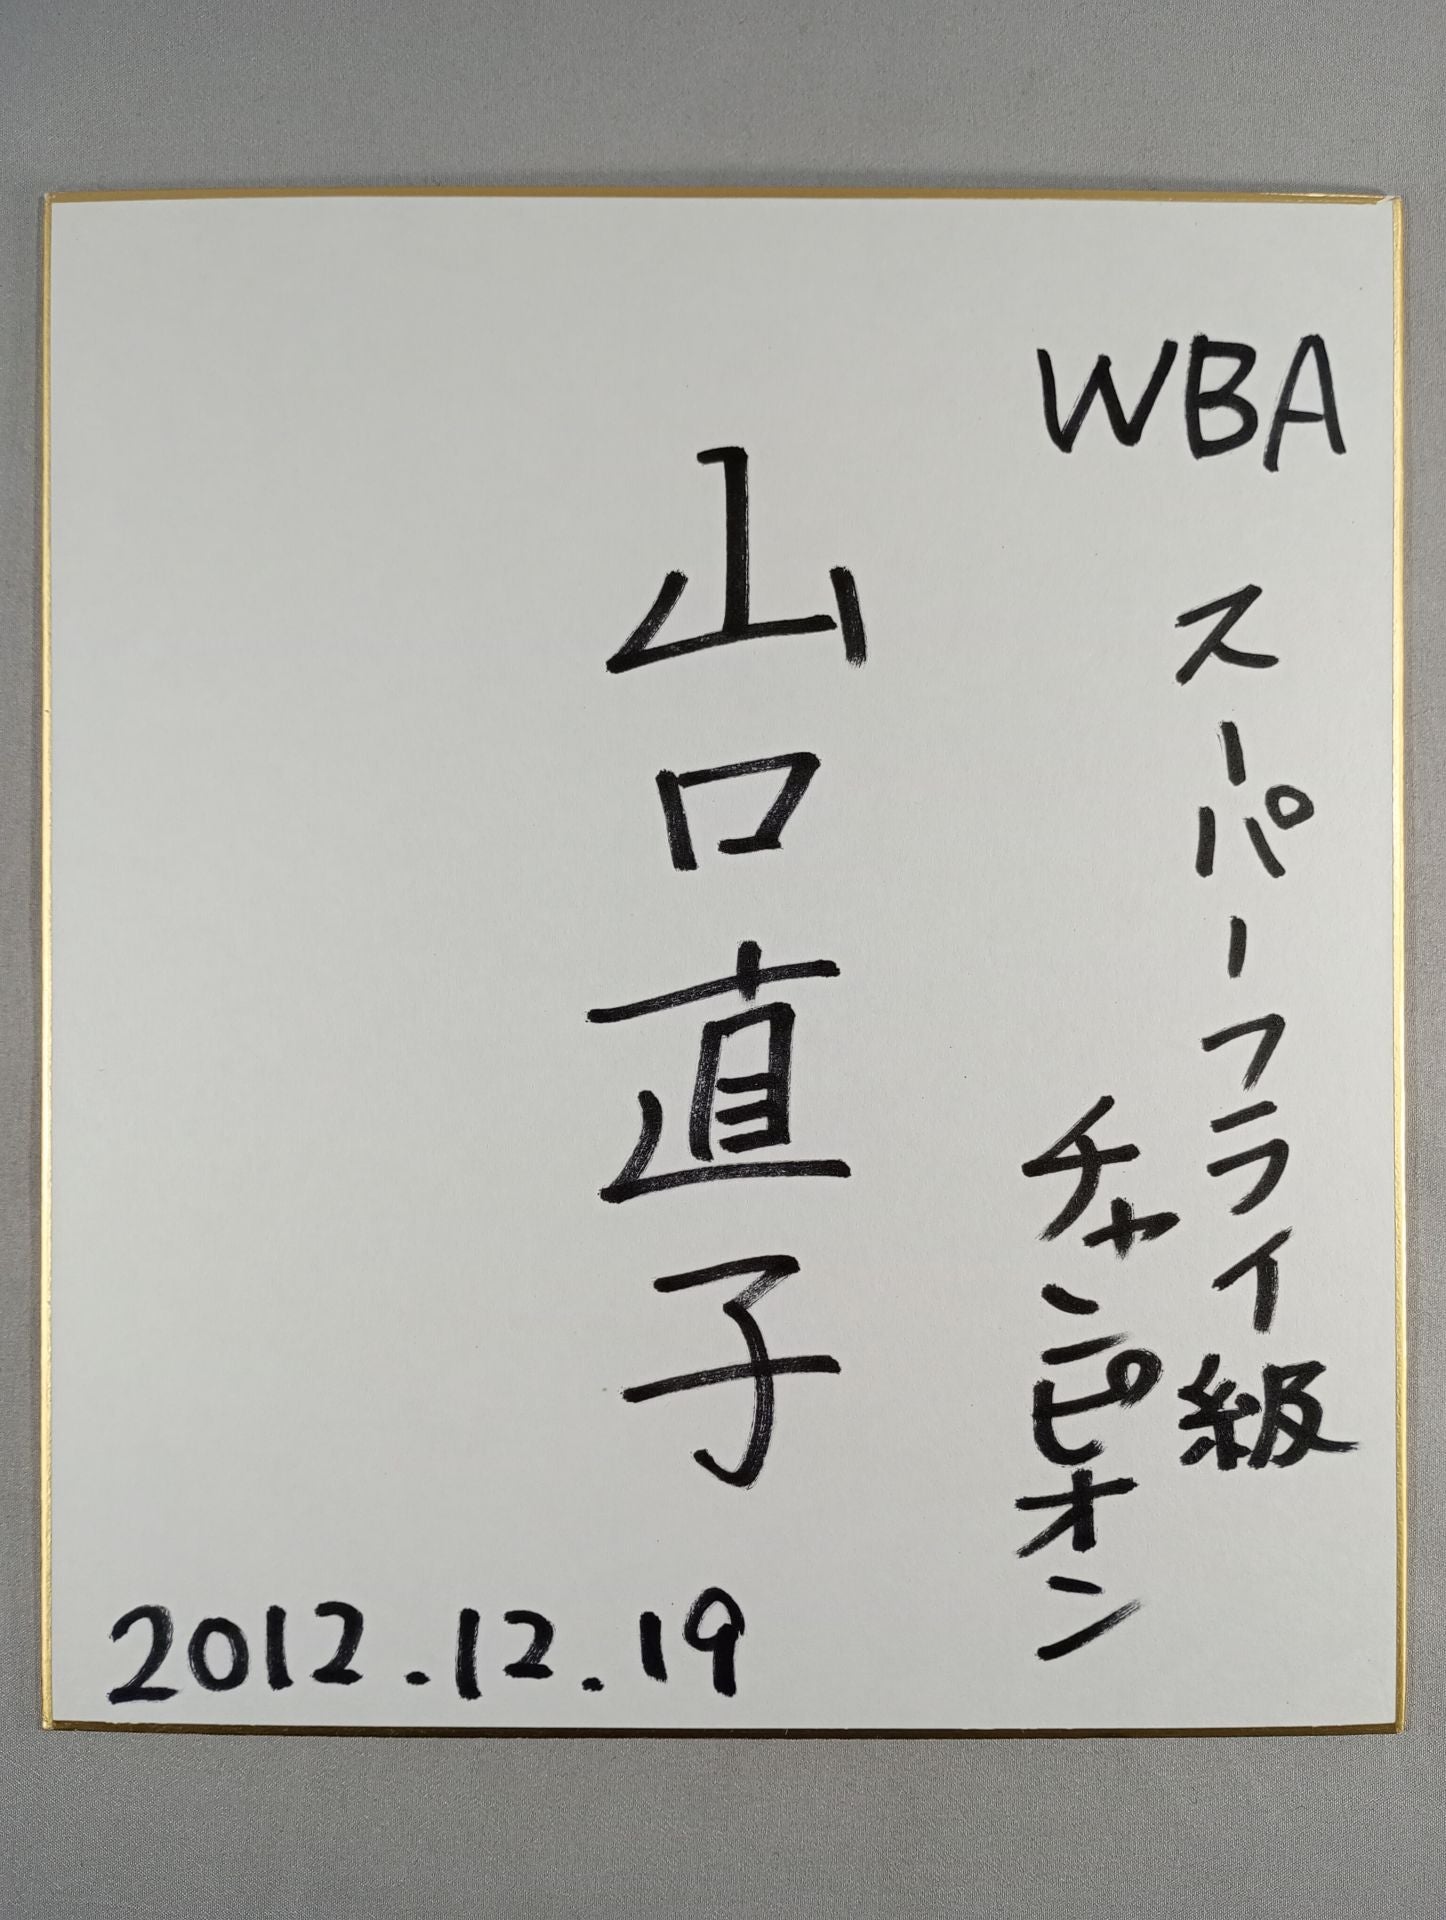 WBA
スーパーフライ級
チャンピオン
山口直子
2012.12.19